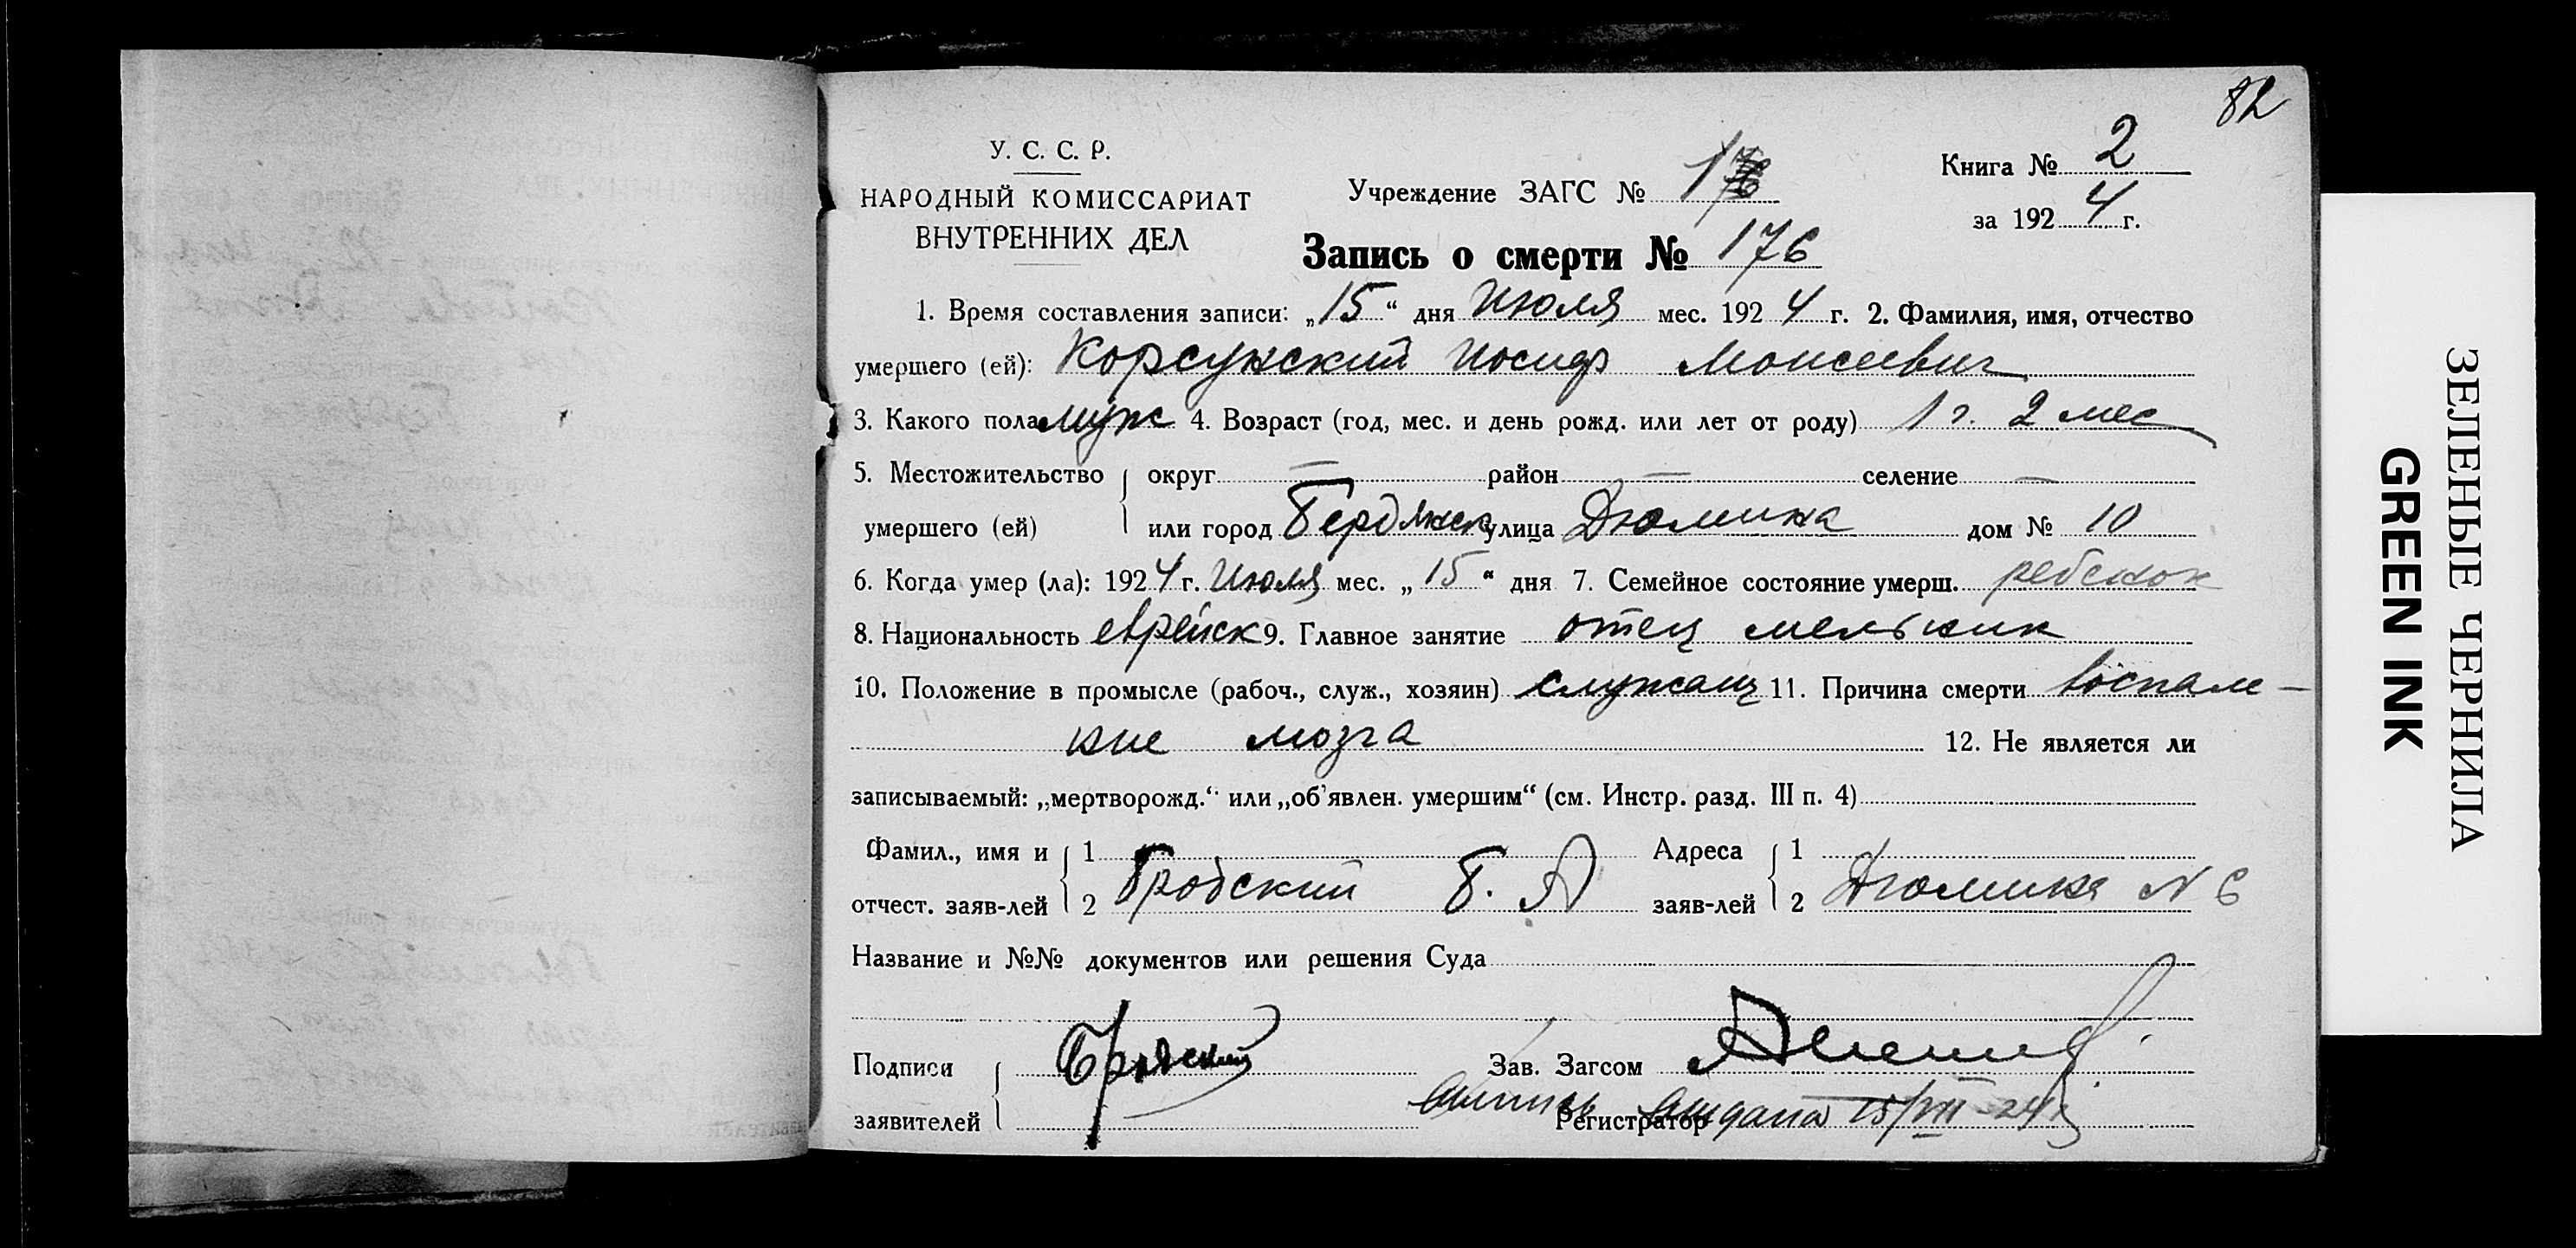 82
У. С. С. Р.
НАРОДНЫЙ КОМИССАРИАТ
ВНУТРЕННИХ ДЕЛ
Учреждение ЗАГС №
Книга № 2
за 1924 г.
Запись о смерти № 176
1. Время составления записи: „15“ дня Июля мес. 1924 г. 2. Фамилия, имя, отчество
умершего (ей): Корсунский Иосиф Моисеевич
3. Какого пола муж 4. Возраст (год, мес. и день рожд. или лет от роду) 1 г. 2 мес
5. Местожительство округ — район — селение —
умершего (ей) или город Бердянск улица Дюмина дом № 10
6. Когда умер (ла): 1924 г. Июля мес. „15“ дня 7. Семейное состояние умерш. ребенок
8. Национальность еврейск 9. Главное занятие отец мельник
10. Положение в промысле (рабоч., служ., хозяин) служащ 11. Причина смерти воспале-
ние мозга 12. Не является ли
записываемый: „мертворожд.“ или „об'явлен. умершим“ (см. Инстр. разд. III п. 4)
Фамил., имя и 1 Адреса 1
отчест. заяв-лей 2 Бродский Б. А заяв-лей 2 Дюмина N 6
Название и №№ документов или решения Суда
Подписи Бродский Зав. Загсом
заявителей Регистратор 15/VII 24
ЗЕЛЕНЫЕ ЧЕРНИЛА
GREEN INK